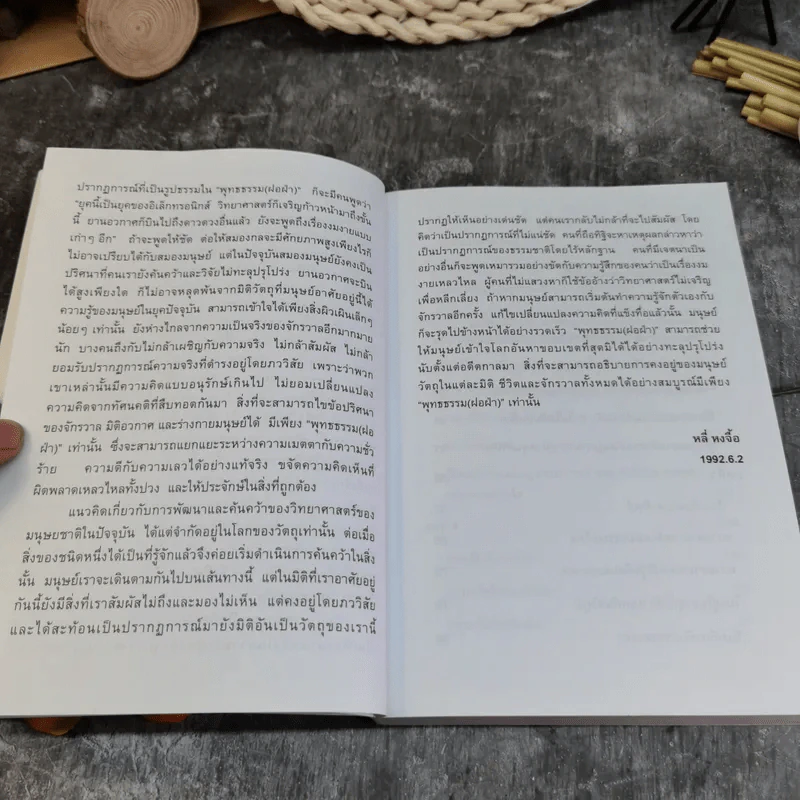 ปรากฏการณ์ที่เป็นรูปธรรมใน "พุทธธรรม(ฝอฝ่า)" ก็จะมีคนพูดว่า
"ยุคนี้เป็นยุคของอิเล็กทรอนิกส์ วิทยาศาสตร์ก็เจริญก้าวหน้ามาถึงขั้น
นี้ ยานอวกาศก็บินไปถึงดาวดวงอื่นแล้ว ยังจะพูดถึงเรื่องงมงายแบบ
เก่าๆ อีก" ถ้าจะพูดให้ชัด ต่อให้สมองกลจะมีศักยภาพสูงเพียงไรก็
ไม่อาจเปรียบได้กับสมองมนุษย์ แต่ในปัจจุบันสมองมนุษย์ยังคงเป็น
ปริศนาที่คนเรายังค้นคว้าและวิจัยไม่ทะลุปรุโปร่ง ยานอวกาศจะบิน
ได้สูงเพียงใด ก็ไม่อาจหลุดพ้นจากมิติวัตถุที่มนุษย์อาศัยอยู่นี้ได้
ความรู้ของมนุษย์ในยุคปัจจุบัน สามารถเข้าใจได้เพียงสิ่งผิวเผินเล็กๆ
น้อยๆ เท่านั้น ยังห่างไกลจากความเป็นจริงของจักรวาลอีกมากมาย
นัก บางคนถึงกับไม่กล้าเผชิญกับความจริง ไม่กล้าสัมผัส ไม่กล้า
ยอมรับปรากฏการณ์ความจริงที่ดำรงอยู่โดยภววิสัย เพราะว่าพวก
เขาเหล่านั้นมีความคิดแบบอนุรักษ์เกินไป ไม่ยอมเปลี่ยนแปลง
ความคิดจากทัศนคติที่สืบทอดกันมา สิ่งที่จะสามารถไขข้อปริศนา
ของจักรวาล มิติอวกาศ และร่างกายมนุษย์ได้ มีเพียง "พุทธธรรม(ฝอ
ฝ่า)" เท่านั้น ซึ่งจะสามารถแยกแยะระหว่างความเมตตากับความชั่ว
ร้าย ความดีกับความเลวได้อย่างแท้จริง ขจัดความคิดเห็นที่
ผิดพลาดเหลวไหลทั้งปวง และให้ประจักษ์ในสิ่งที่ถูกต้อง
แนวคิดเกี่ยวกับการพัฒนาและค้นคว้าของวิทยาศาสตร์ของ
มนุษยชาติในปัจจุบัน ได้แต่จำกัดอยู่ในโลกของวัตถุเท่านั้น ต่อเมื่อ
สิ่งของชนิดหนึ่งได้เป็นที่รู้จักแล้วจึงค่อยเริ่มดำเนินการค้นคว้าในสิ่ง
นั้น มนุษย์เราจะเดินตามกันไปบนเส้นทางนี้ แต่ในมิติที่เราอาศัยอยู่
กันนี้ยังมีสิ่งที่เราสัมผัสไม่ถึงและมองไม่เห็น แต่คงอยู่โดยภววิสัย
และได้สะท้อนเป็นปรากฏการณ์มายังมิติอันเป็นวัตถุของเรานี้
ปรากฏให้เห็นอย่างเด่นชัด แต่คนเรากลับไม่กล้าที่จะไปสัมผัส โดย
คิดว่าเป็นปรากฏการณ์ที่ไม่แน่ชัด คนที่ถือทิฐิจะหาเหตุผลกล่าวหาว่า
เป็นปรากฏการณ์ของธรรมชาติโดยไร้หลักฐาน คนที่มีเจตนาเป็น
อย่างอื่นก็จะพูดเหมารวมอย่างขัดกับความรู้สึกของตนว่าเป็นเรื่องงม
งายเหลวไหล ผู้คนที่ไม่แสวงหาก็ใช้ข้ออ้างว่าวิทยาศาสตร์ไม่เจริญ
เพื่อหลีกเลี่ยง ถ้าหากมนุษย์สามารถเริ่มต้นทำความรู้จักตัวเองกับ
จักรวาลอีกครั้ง แก้ไขเปลี่ยนแปลงความคิดที่แข็งทื่อแล้วนั้น มนุษย์
ก็จะรุดไปข้างหน้าได้อย่างรวดเร็ว "พุทธธรรม(ฝอฝ่า)" สามารถช่วย
ให้มนุษย์เข้าใจโลกอันหาขอบเขตที่สุดมิได้ได้อย่างทะลุปรุโปร่ง
นับตั้งแต่อดีตกาลมา สิ่งที่จะสามารถอธิบายการคงอยู่ของมนุษย์
วัตถุในแต่ละมิติ ชีวิตและจักรวาลทั้งหมดได้อย่างสมบูรณ์มีเพียง
"พุทธธรรม(ฝอฝ่า)" เท่านั้น
หลี่ หงจื้อ
1992.6.2